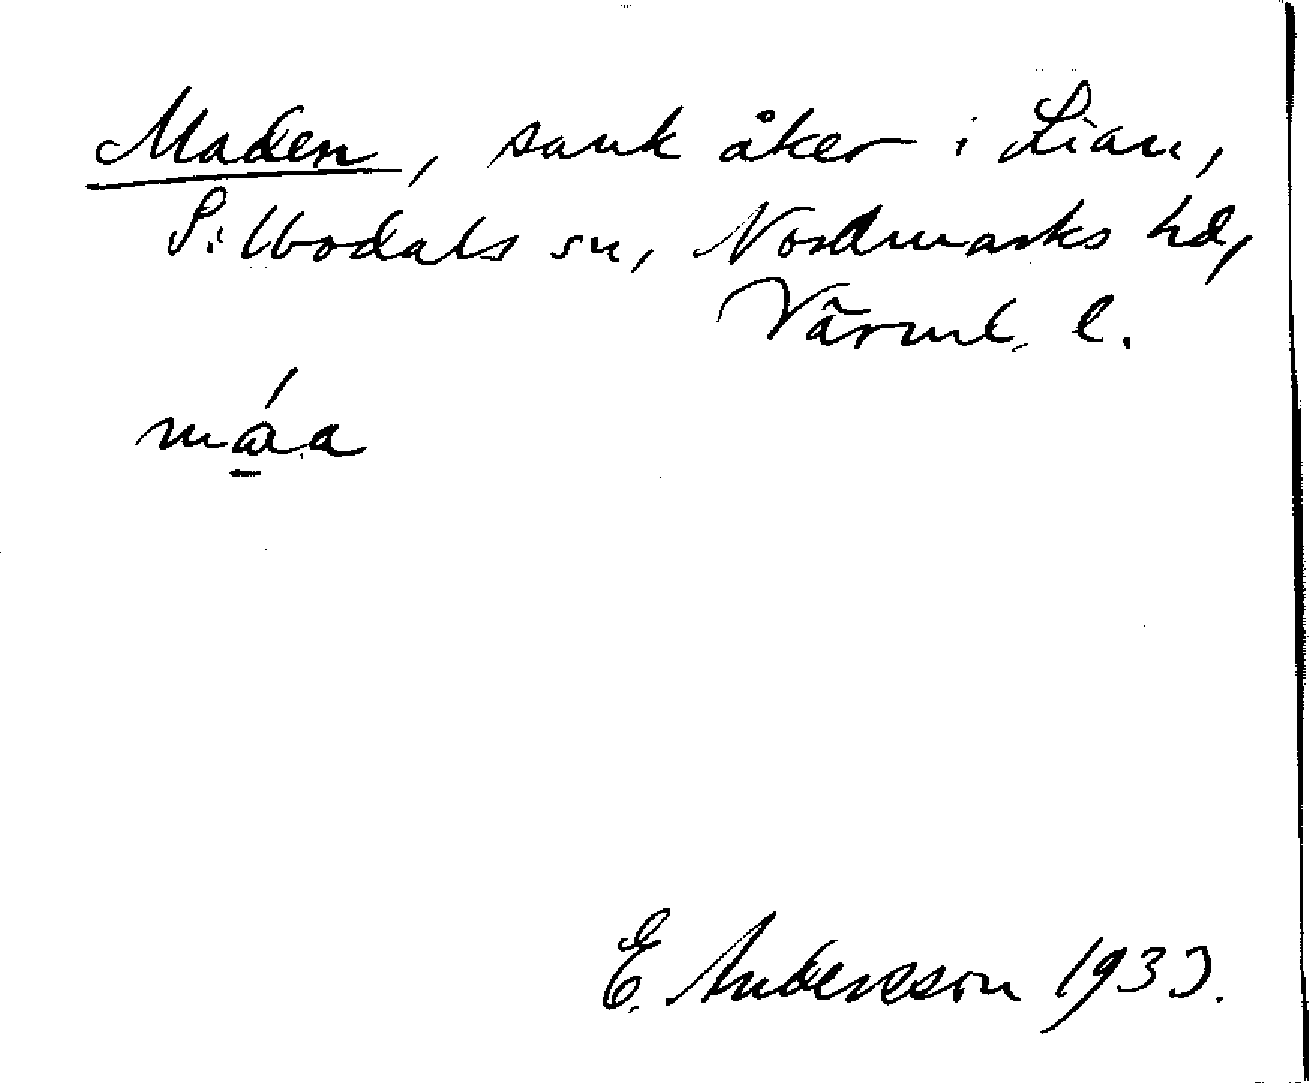 Maden, sank åker i Lian,
Sillbodals sn, Nordmarks hd,
Värml. l.
máa
E. Andersson 1933.